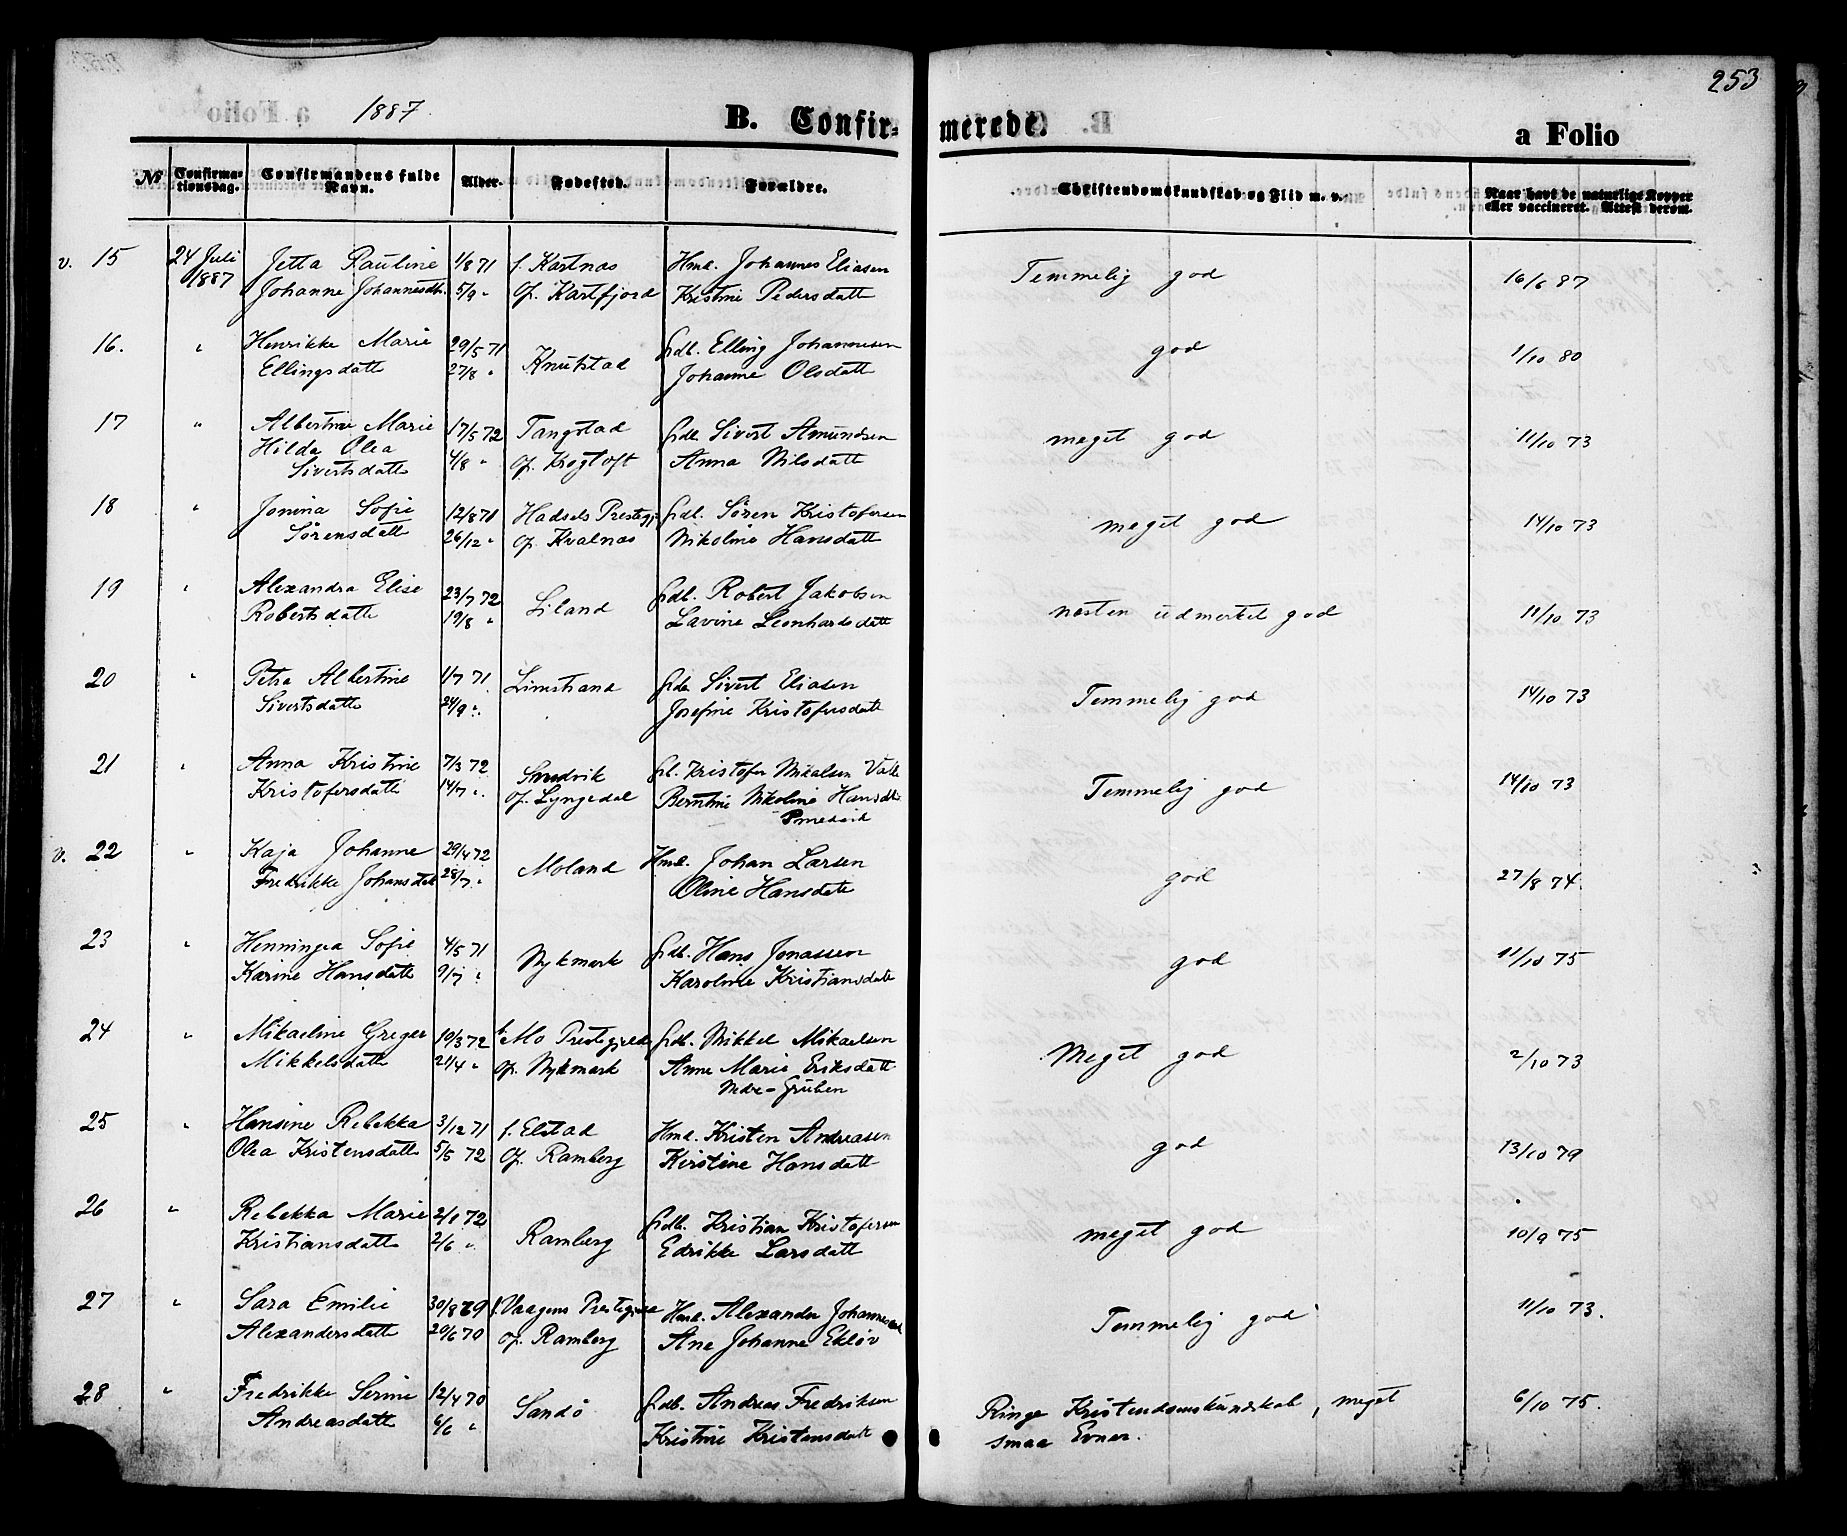 253
1887.
B. Confir-
merede.
a Folio
№
Confirma-
tionsdag.
Confirmandens fulde
Navn.
Alder.
Fødested.
Forældre.
Christendomskundskab og Flid m. v.
Naar havt de naturlige Kopper
eller vaccineret. Attest derom.
v. 15 24 Juli Jetta Pauline 1/8 71 f. Hml. Johannes Eliasen Temmelig god 16/6 87
1887 Johanne Johannesdt. 5/9 " Of. Kristine Pedersdatt
16. " Henrikke Marie 29/5 71 Knutstad frdb. Elling Johannesen god 1/10 80
Ellingsdatt 27/8 " Johanne Olsdatt
17 " Albertine Marie 17/5 72 Tangstad frdb. Sivert Amundsen meget god 11/10 73
Hilda Olea 4/8 " Of. Krogtoft Anna Nilsdatt
Sivertsdatt
18 " Jonina Sofie 12/8 71 Hadsels Prestegj. frdb. Søren Kristofersen meget god 14/10 73
Sørensdatt 26/12 " Of. Kvalnæs Nikoline Hansdatt
19 " Alexandra Elise 23/7 72 Liland frdb. Robert Jakobsen nesten udmerket god 11/10 73
Robertsdatt 19/8 " Lavine Leonhardsdatt
20 " Petra Albertine 1/7 71 Limstrand frdb. Sivert Eliasen Temmelig god 14/10 73
Sivertsdatt 24/9 " Josefine Kristofersdatt
21 " Anna Kristine 7/3 72 fl. Kristofer Mikalsen Temmelig god 14/10 73
Kristofersdatt 14/7 " Of. Lyngedal Berntine Nikoline Hansdt.
v. 22 " Kaja Johanne 29/4 72 Moland Hml. Johan Larsen god 27/8 74
Fredrikke Johansdatt 28/7 " Oline Hansdatt
23 " Henningea Sofie 4/5 71 Nykmark frdb. Hans Jonassen god 11/10 75
Karine Hansdatt 9/7 " Karoline Kristiansdatt
24 " Mikaeline Greger 19/3 72 f. Mo Prestegjeld frdb. Mikkel Mikaelsen Meget god 2/10 73
Mikkelsdatt 21/4 " Of. Nykmark Anne Marie Eriksdatt
Gruben
25 " Hansine Rebekka 3/12 71 f. Elstad Hml. Kristen Andreasen god 13/10 79
Olea Kristensdatt 5/5 72 Of. Ramberg Kirstine Hansdatt
26 " Rebekka Marie 2/1 72 Ramberg frdb. Kristian Kristofersen meget god 10/9 75
Kristiansdatt 2/6 " Edrikke Larsdatt
27 " Sara Emilie 30/8 69 f. Vaagens Prestegjeld Hml. Alexander Johannesen Temmelig god 11/10 73.
Alexandersdatt 29/6 70 Of. Ramberg Ane Johanne Ekløv
28 " Fredrikke Serine 12/4 70 Sandø frdb. Andreas Fredriksen Ringe Kristendomskundskab, meget 6/10 75.
Andreasdatt 6/6 " Kristine Kristensdatt smaa Evner.